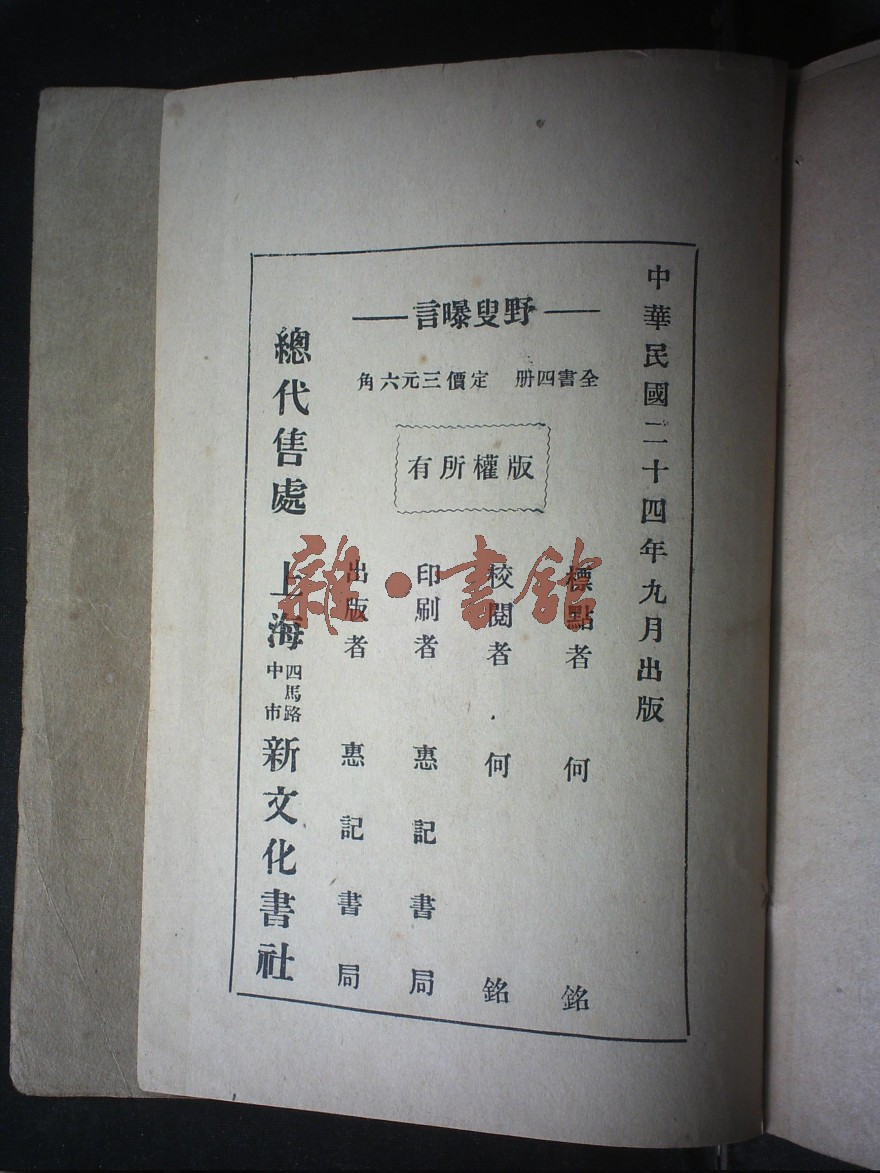 中華民國二十四年九月出版
野叟曝言
全書四册　定價三元六角
版權所有
標點者　何銘
校閱者　何銘
印刷者　惠記書局
出版者　惠記書局
總代售處　上海四馬路中市新文化書社
雜·書館